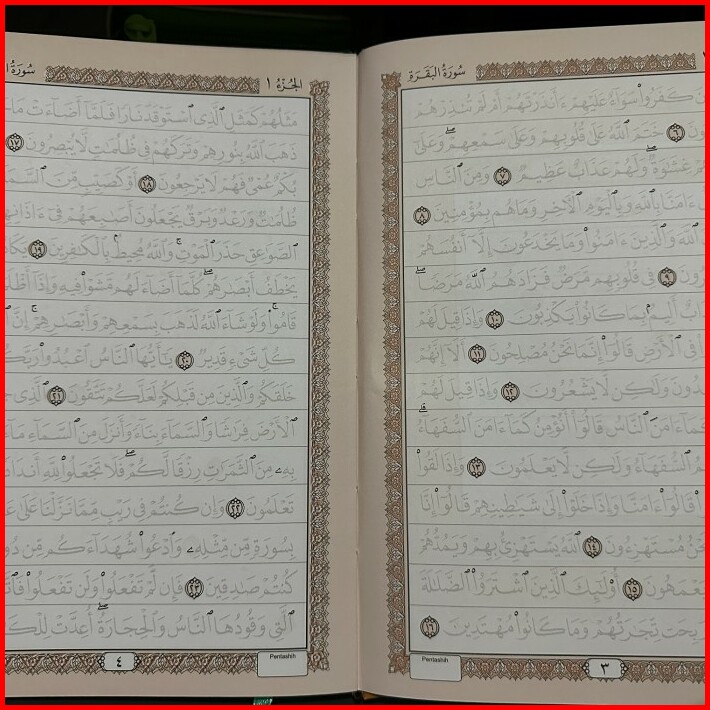 سُورَةُ البَقَرَةِ
كَفَرُوا۟ سَوَآءٌ عَلَيْهِمْ ءَأَنذَرْتَهُمْ أَمْ لَمْ تُنذِرْهُمْ
٦ خَتَمَ ٱللَّهُ عَلَىٰ قُلُوبِهِمْ وَعَلَىٰ سَمْعِهِمْ ۖ وَعَلَىٰٓ
غِشَٰوَةٌ ۖ وَلَهُمْ عَذَابٌ عَظِيمٌ ٧ وَمِنَ ٱلنَّاسِ
ءَامَنَّا بِٱللَّهِ وَبِٱلْيَوْمِ ٱلْءَاخِرِ وَمَا هُم بِمُؤْمِنِينَ ٨
ٱللَّهَ وَٱلَّذِينَ ءَامَنُوا۟ وَمَا يَخْدَعُونَ إِلَّآ أَنفُسَهُمْ
٩ فِى قُلُوبِهِم مَّرَضٌ فَزَادَهُمُ ٱللَّهُ مَرَضًا ۖ
أَلِيمٌۢ بِمَا كَانُوا۟ يَكْذِبُونَ ١٠ وَإِذَا قِيلَ لَهُمْ
فِى ٱلْأَرْضِ قَالُوٓا۟ إِنَّمَا نَحْنُ مُصْلِحُونَ ١١ أَلَآ إِنَّهُمْ
وَلَٰكِن لَّا يَشْعُرُونَ ١٢ وَإِذَا قِيلَ لَهُمْ
كَمَآ ءَامَنَ ٱلنَّاسُ قَالُوٓا۟ أَنُؤْمِنُ كَمَآ ءَامَنَ ٱلسُّفَهَآءُ ۗ
ٱلسُّفَهَآءُ وَلَٰكِن لَّا يَعْلَمُونَ ١٣ وَإِذَا لَقُوا۟
قَالُوٓا۟ ءَامَنَّا وَإِذَا خَلَوْا۟ إِلَىٰ شَيَٰطِينِهِمْ قَالُوٓا۟ إِنَّا
مُسْتَهْزِءُونَ ١٤ ٱللَّهُ يَسْتَهْزِئُ بِهِمْ وَيَمُدُّهُمْ
يَعْمَهُونَ ١٥ أُو۟لَٰٓئِكَ ٱلَّذِينَ ٱشْتَرَوُا۟ ٱلضَّلَٰلَةَ
رَبِحَت تِّجَٰرَتُهُمْ وَمَا كَانُوا۟ مُهْتَدِينَ ١٦
Pentashih
٣
الجُزْءُ ١
سُورَةُ
مَثَلُهُمْ كَمَثَلِ ٱلَّذِى ٱسْتَوْقَدَ نَارًا فَلَمَّآ أَضَآءَتْ مَا
ذَهَبَ ٱللَّهُ بِنُورِهِمْ وَتَرَكَهُمْ فِى ظُلُمَٰتٍ لَّا يُبْصِرُونَ ١٧
بُكْمٌ عُمْىٌ فَهُمْ لَا يَرْجِعُونَ ١٨ أَوْ كَصَيِّبٍ مِّنَ
ظُلُمَٰتٌ وَرَعْدٌ وَبَرْقٌ يَجْعَلُونَ أَصَٰبِعَهُمْ فِىٓ ءَاذَانِهِم
ٱلصَّوَٰعِقِ حَذَرَ ٱلْمَوْتِ ۚ وَٱللَّهُ مُحِيطٌۢ بِٱلْكَٰفِرِينَ ١٩
يَخْطَفُ أَبْصَٰرَهُمْ ۖ كُلَّمَآ أَضَآءَ لَهُم مَّشَوْا۟ فِيهِ وَإِذَآ
قَامُوا۟ ۚ وَلَوْ شَآءَ ٱللَّهُ لَذَهَبَ بِسَمْعِهِمْ وَأَبْصَٰرِهِمْ ۚ إِنَّ
كُلِّ شَىْءٍ قَدِيرٌ ٢٠ يَٰٓأَيُّهَا ٱلنَّاسُ ٱعْبُدُوا۟
خَلَقَكُمْ وَٱلَّذِينَ مِن قَبْلِكُمْ لَعَلَّكُمْ تَتَّقُونَ ٢١ ٱلَّذِى
ٱلْأَرْضَ فِرَٰشًا وَٱلسَّمَآءَ بِنَآءً وَأَنزَلَ مِنَ ٱلسَّمَآءِ
بِهِۦ مِنَ ٱلثَّمَرَٰتِ رِزْقًا لَّكُمْ ۖ فَلَا تَجْعَلُوا۟ لِلَّهِ
تَعْلَمُونَ ٢٢ وَإِن كُنتُمْ فِى رَيْبٍ مِّمَّا نَزَّلْنَا عَلَىٰ
بِسُورَةٍ مِّن مِّثْلِهِۦ وَٱدْعُوا۟ شُهَدَآءَكُم مِّن
كُنتُمْ صَٰدِقِينَ ٢٣ فَإِن لَّمْ تَفْعَلُوا۟ وَلَن تَفْعَلُوا۟
ٱلَّتِى وَقُودُهَا ٱلنَّاسُ وَٱلْحِجَارَةُ ۖ أُعِدَّتْ
Pentashih
٤